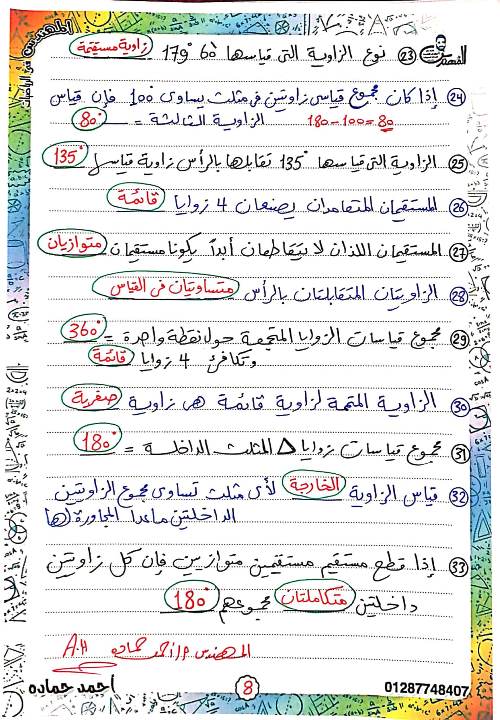 المهندس في الرياضيات
المهندس
23 نوع الزاوية التى قياسها 60 َ 179° زاوية مستقيمة
24 إذا كان مجموع قياسى زاويتين فى مثلث يساوى 100° فإن قياس
الزاوية الثالثة = 80° 180-100=80
25 الزاوية التى قياسها 135° تقابلها بالرأس زاوية قياسها 135°
26 المستقيمان المتعامدان يصنعان 4 زوايا قائمة
27 المستقيمان اللذان لا يتقاطعان أبداً يكونا مستقيمان متوازيان
28 الزاويتان المتقابلتان بالرأس متساويتان فى القياس
29 مجموع قياسات الزوايا المتجمعة حول نقطة واحدة = 360°
وتكافئ 4 زوايا قائمة
30 الزاوية المتممة لزاوية قائمة هى زاوية صفرية
31 مجموع قياسات زوايا Δ المثلث الداخلة = 180°
32 قياس الزاوية الخارجة لأى مثلث تساوى مجموع الزاويتين
الداخلتين ماعدا المجاورة لها
33 إذا قطع مستقيم مستقيمين متوازيين فإن كل زاويتين
داخلتين متكاملتان مجموعهم 180°
المهندس أ/ احمد حماده A.H
احمد حماده 8 01287748407